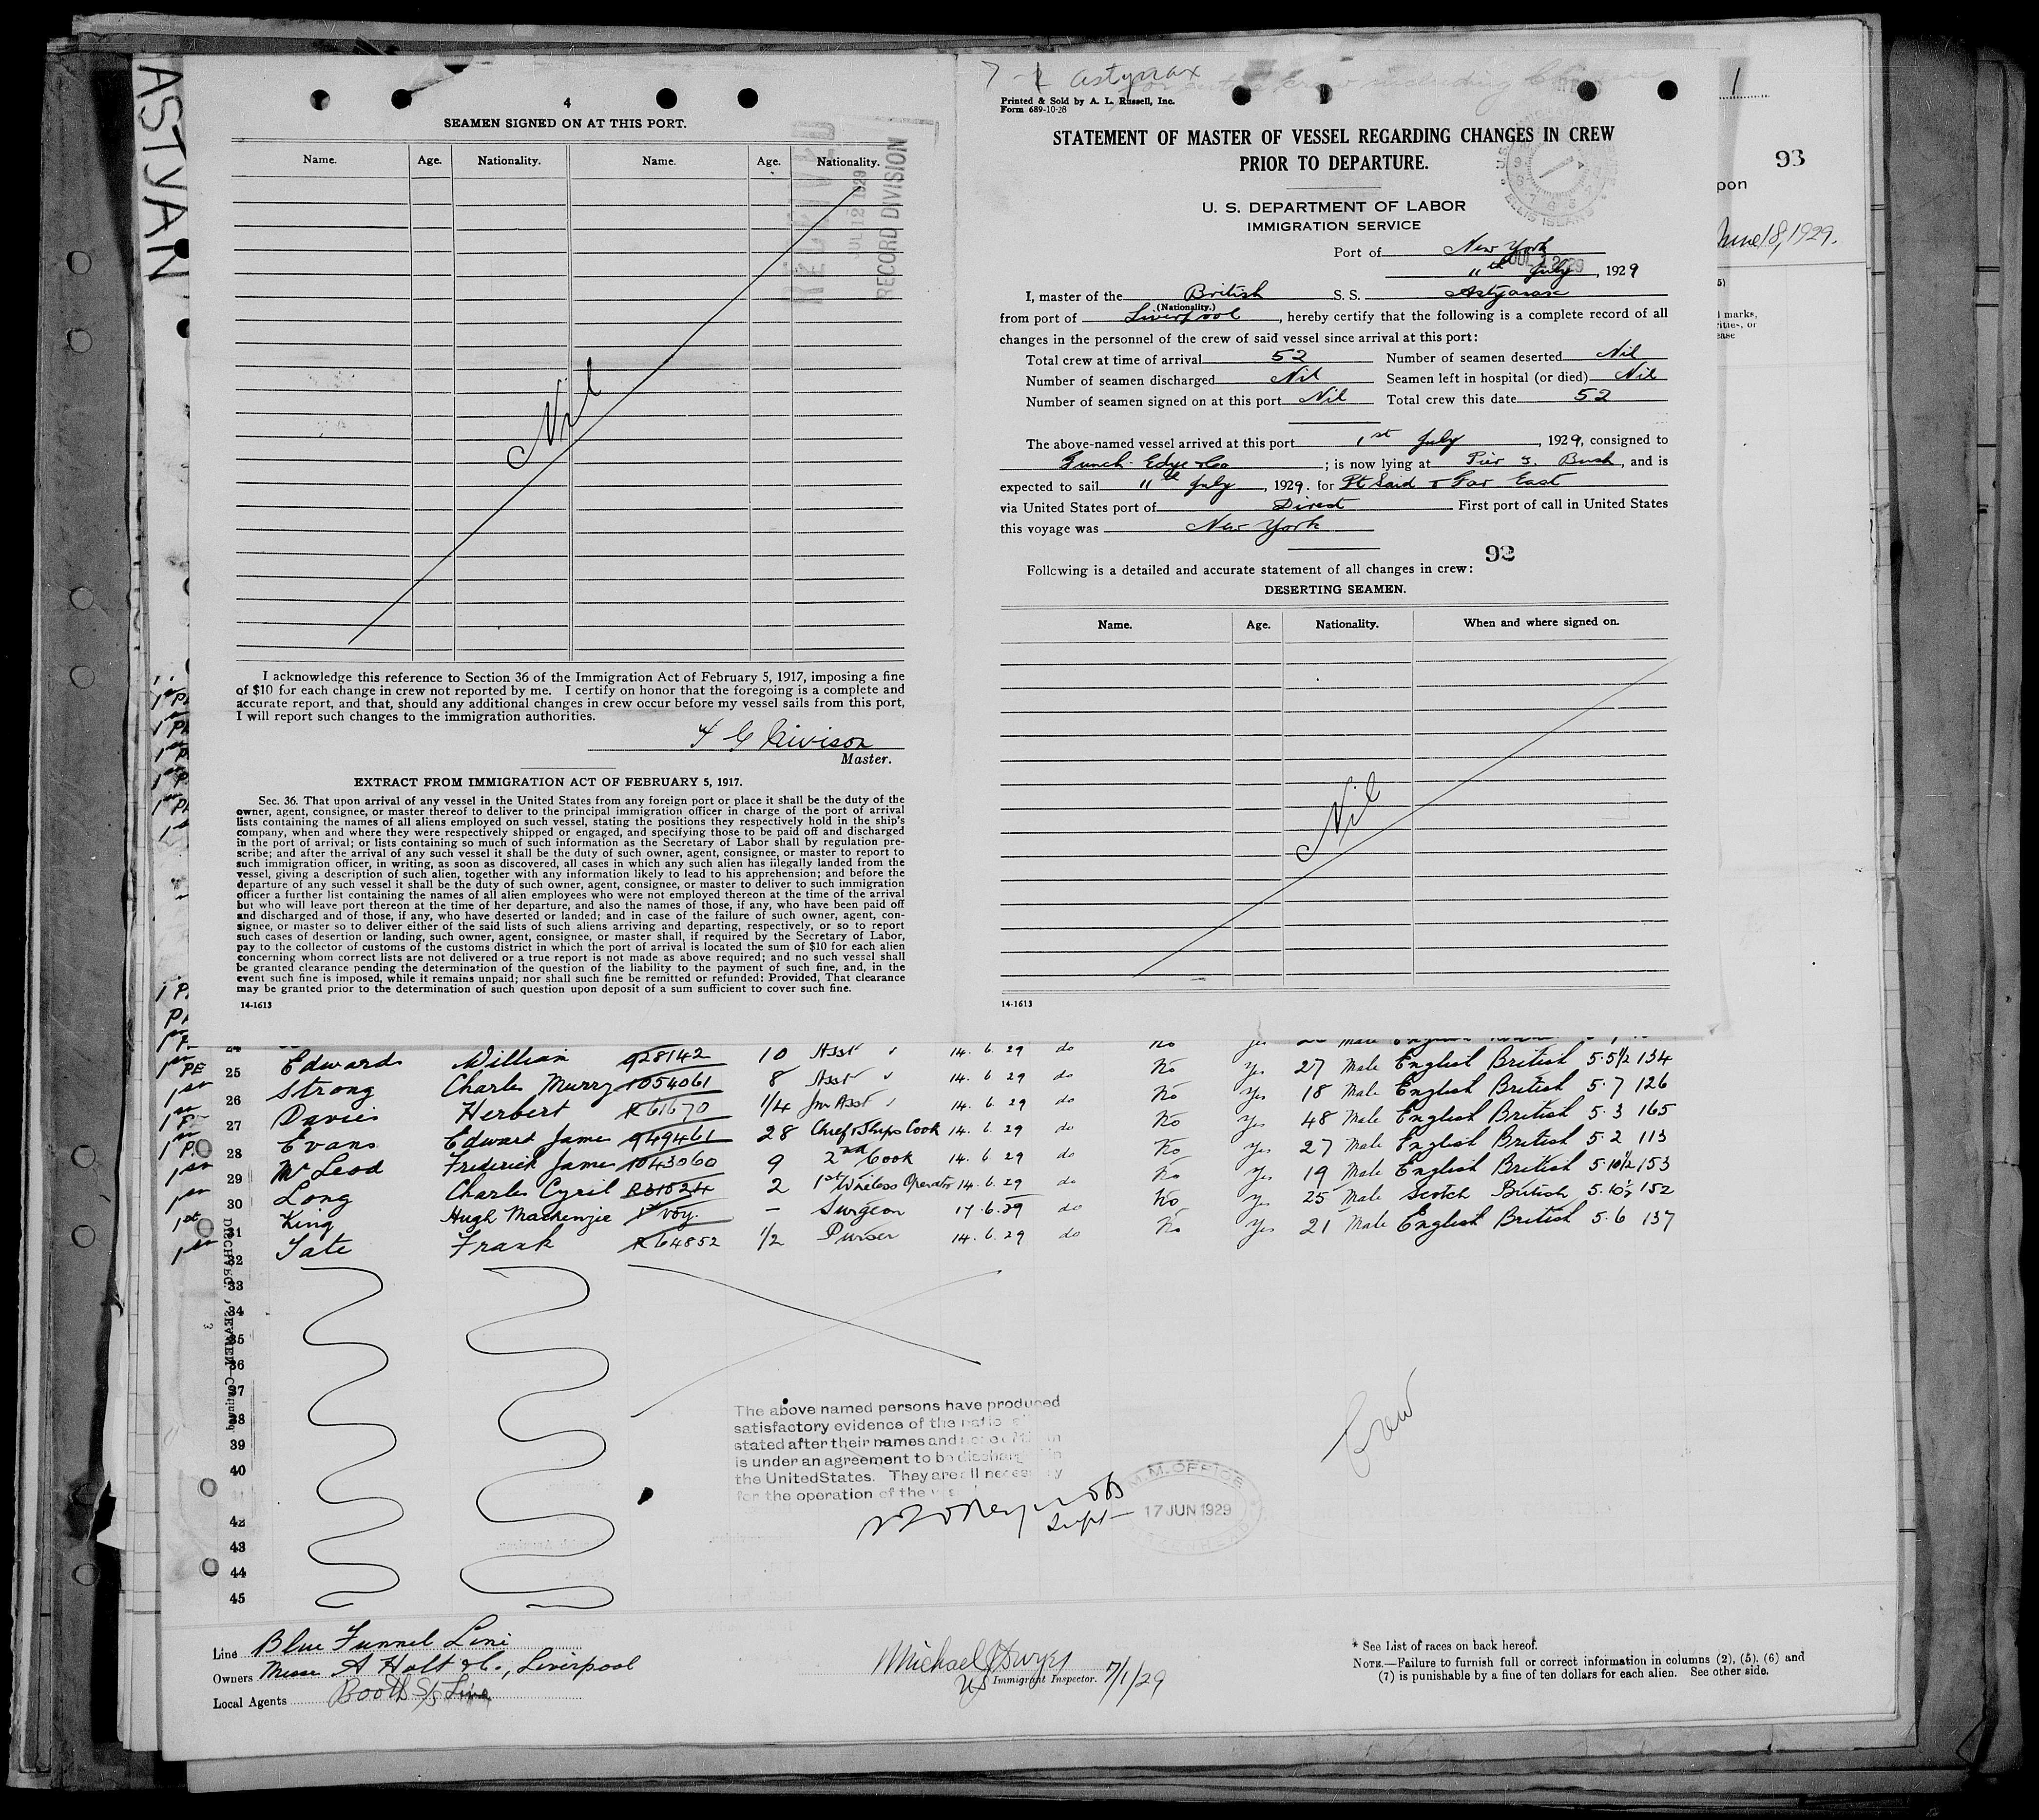 ASTYAN
4
SEAMEN SIGNED ON AT THIS PORT.
Name. Age. Nationality. Name. Age. Nationality.
RECEIVED
JUL 12 1929
RECORD DIVISION
Nil
I acknowledge this reference to Section 36 of the Immigration Act of February 5, 1917, imposing a fine
of $10 for each change in crew not reported by me. I certify on honor that the foregoing is a complete and
accurate report, and that, should any additional changes in crew occur before my vessel sails from this port,
I will report such changes to the immigration authorities.
Master.
EXTRACT FROM IMMIGRATION ACT OF FEBRUARY 5, 1917.
Sec. 36. That upon arrival of any vessel in the United States from any foreign port or place it shall be the duty of the
owner, agent, consignee, or master thereof to deliver to the principal immigration officer in charge of the port of arrival
lists containing the names of all aliens employed on such vessel, stating the positions they respectively hold in the ship's
company, when and where they were respectively shipped or engaged, and specifying those to be paid off and discharged
in the port of arrival; or lists containing so much of such information as the Secretary of Labor shall by regulation pre-
scribe; and after the arrival of any such vessel it shall be the duty of such owner, agent, consignee, or master to report to
such immigration officer, in writing, as soon as discovered, all cases in which any such alien has illegally landed from the
vessel, giving a description of such alien, together with any information likely to lead to his apprehension; and before the
departure of any such vessel it shall be the duty of such owner, agent, consignee, or master to deliver to such immigration
officer a further list containing the names of all alien employees who were not employed thereon at the time of the arrival
but who will leave port thereon at the time of her departure, and also the names of those, if any, who have been paid off
and discharged and of those, if any, who have deserted or landed; and in case of the failure of such owner, agent, con-
signee, or master so to deliver either of the said lists of such aliens arriving and departing, respectively, or so to report
such cases of desertion or landing, such owner, agent, consignee, or master shall, if required by the Secretary of Labor,
pay to the collector of customs of the customs district in which the port of arrival is located the sum of $10 for each alien
concerning whom correct lists are not delivered or a true report is not made as above required; and no such vessel shall
be granted clearance pending the determination of the question of the liability to the payment of such fine, and, in the
event such fine is imposed, while it remains unpaid; nor shall such fine be remitted or refunded: Provided, That clearance
may be granted prior to the determination of such question upon deposit of a sum sufficient to cover such fine.
14-1613
Astyanax
Printed & Sold by A. L. Russell, Inc.
Form 689-10-28
STATEMENT OF MASTER OF VESSEL REGARDING CHANGES IN CREW
PRIOR TO DEPARTURE.
ELLIS ISLAND
U. S. DEPARTMENT OF LABOR
IMMIGRATION SERVICE
Port of New York
11th July, 1929
I, master of the British S. S. Astyanax
(Nationality.)
from port of Liverpool, hereby certify that the following is a complete record of all
changes in the personnel of the crew of said vessel since arrival at this port:
Total crew at time of arrival 52 Number of seamen deserted Nil
Number of seamen discharged Nil Seamen left in hospital (or died) Nil
Number of seamen signed on at this port Nil Total crew this date 52
The above-named vessel arrived at this port 1st July, 1929, consigned to
Funch Edye & Co; is now lying at Pier 3. Bush, and is
expected to sail 11th July, 1929. for Pt Said & Far East
via United States port of Direct First port of call in United States
this voyage was New York
92
Following is a detailed and accurate statement of all changes in crew:
DESERTING SEAMEN.
Name. Age. Nationality. When and where signed on.
Nil
14-1613
1
93
pon
June 18, 1929.
marks,
or
ease
25 Edwards William 928142 10 Asst 14. 6. 29 do No Yes 27 Male English British 5.5½ 134
26 Strong Charles Murry 1054061 8 Asst 14. 6 29 do No Yes 18 Male English British 5.7 126
27 Davies Herbert R61670 1/4 Jnr Asst 14. 6. 29 do No Yes 48 Male English British 5.3 165
28 Evans Edward James 949461 28 Chief & Ships Cook 14. 6. 29 do No Yes 27 Male English British 5.2 113
29 McLeod Frederick James 1043060 9 2nd Cook 14. 6. 29 do No Yes 19 Male English British 5.10½ 153
30 Long Charles Cyril R31524 2 1st Wireless Operator 14. 6. 29 do No Yes 25 Male Scotch British 5.10½ 152
31 King Hugh Mackenzie 1st Voy. - Surgeon 17.6.29 do No Yes 21 Male English British 5.6 137
32 Tate Frank R64852 1/2 Purser 14. 6. 29 do
33
34
35
36
37
38
39
40
42
43
44
45
DISCHARGED SEAMEN—Continued
3
The above named persons have produced
satisfactory evidence of the
stated after their names and
is under an agreement to be
the United States. They are all necessary
for the operation of the
Supt
M.M. OFFICE
17 JUN 1929
Crew
Line Blue Funnel Line
Owners Messrs A Holt & Co., Liverpool
Local Agents Booth S/S Line
Michael J Dwyer
US Immigrant Inspector. 7/1/29
* See List of races on back hereof.
NOTE.—Failure to furnish full or correct information in columns (2), (5), (6) and
(7) is punishable by a fine of ten dollars for each alien. See other side.